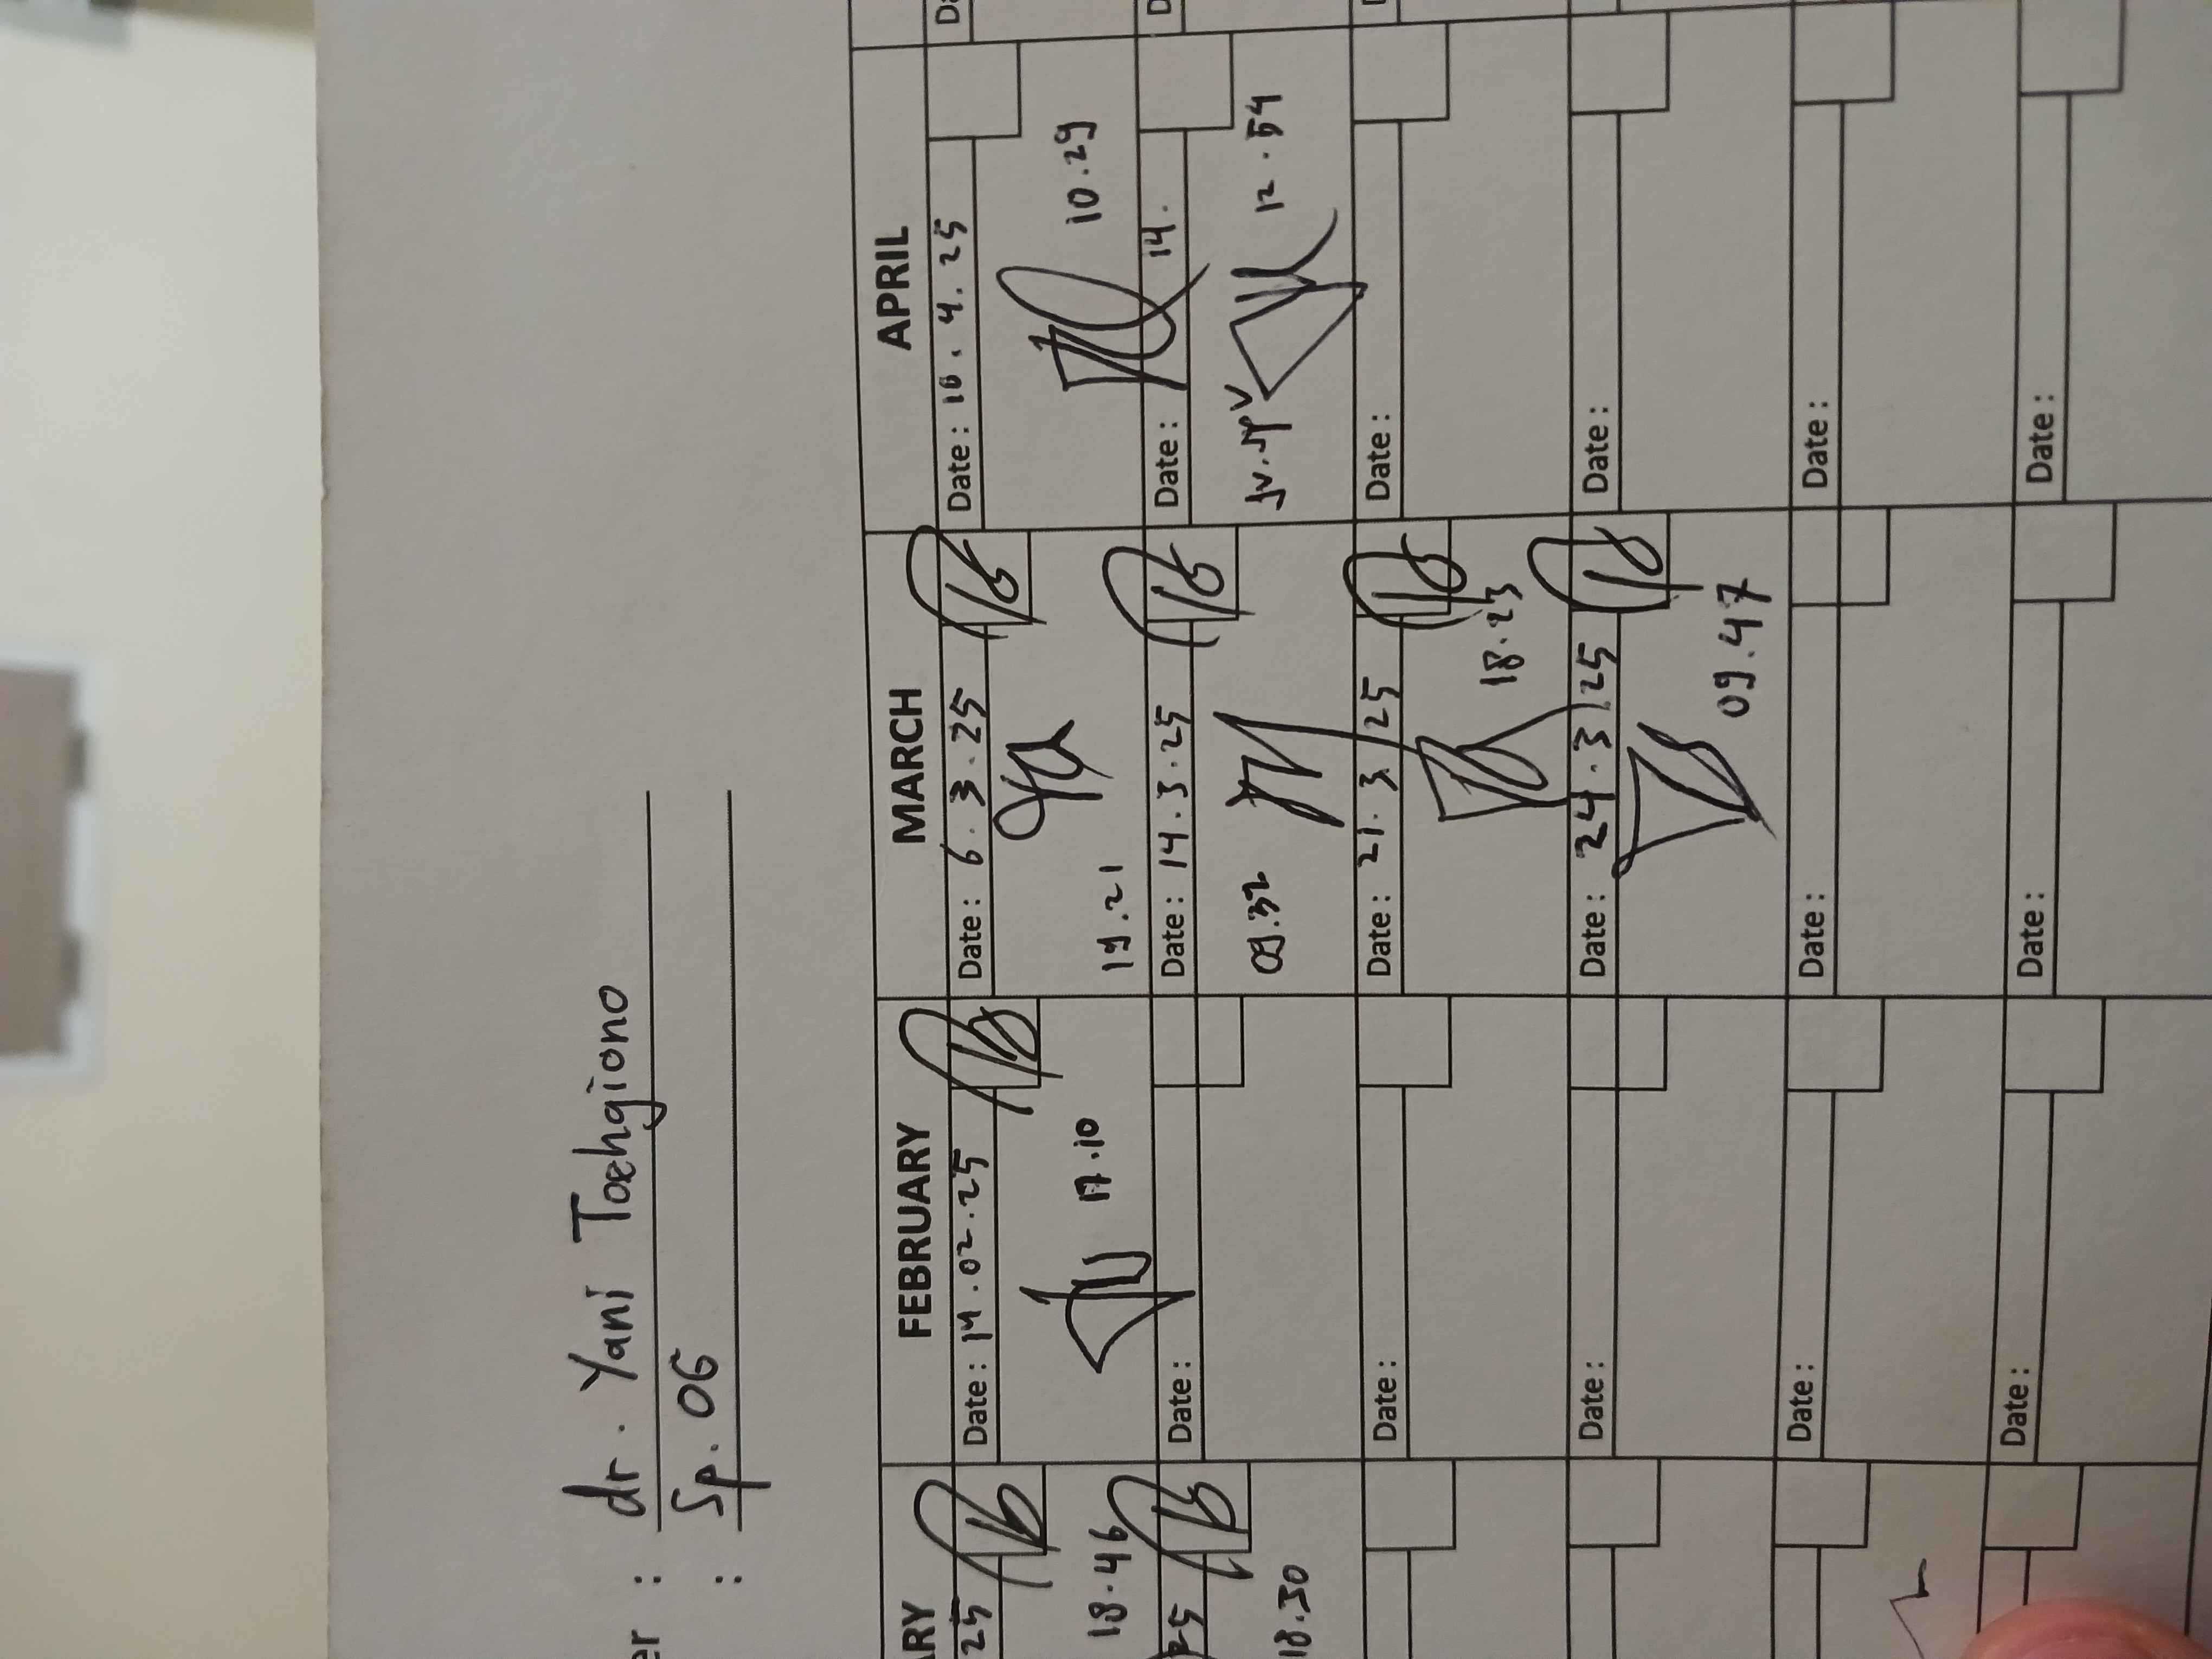 er : dr. Yani Toehgiono
: Sp. OG
ARY FEBRUARY MARCH APRIL
25 Date : 14.02.25 Date : 6.3.25 Date : 10.4.25
18.46 17.10 19.21 10.29
25 Date : Date : 14.3.25 Date : 14.
18.30 09.32 12.54
Date : Date : 21.3.25 Date :
18.23
Date : Date : 24.3.25 Date :
09.47
Date : Date : Date :
Date : Date : Date :